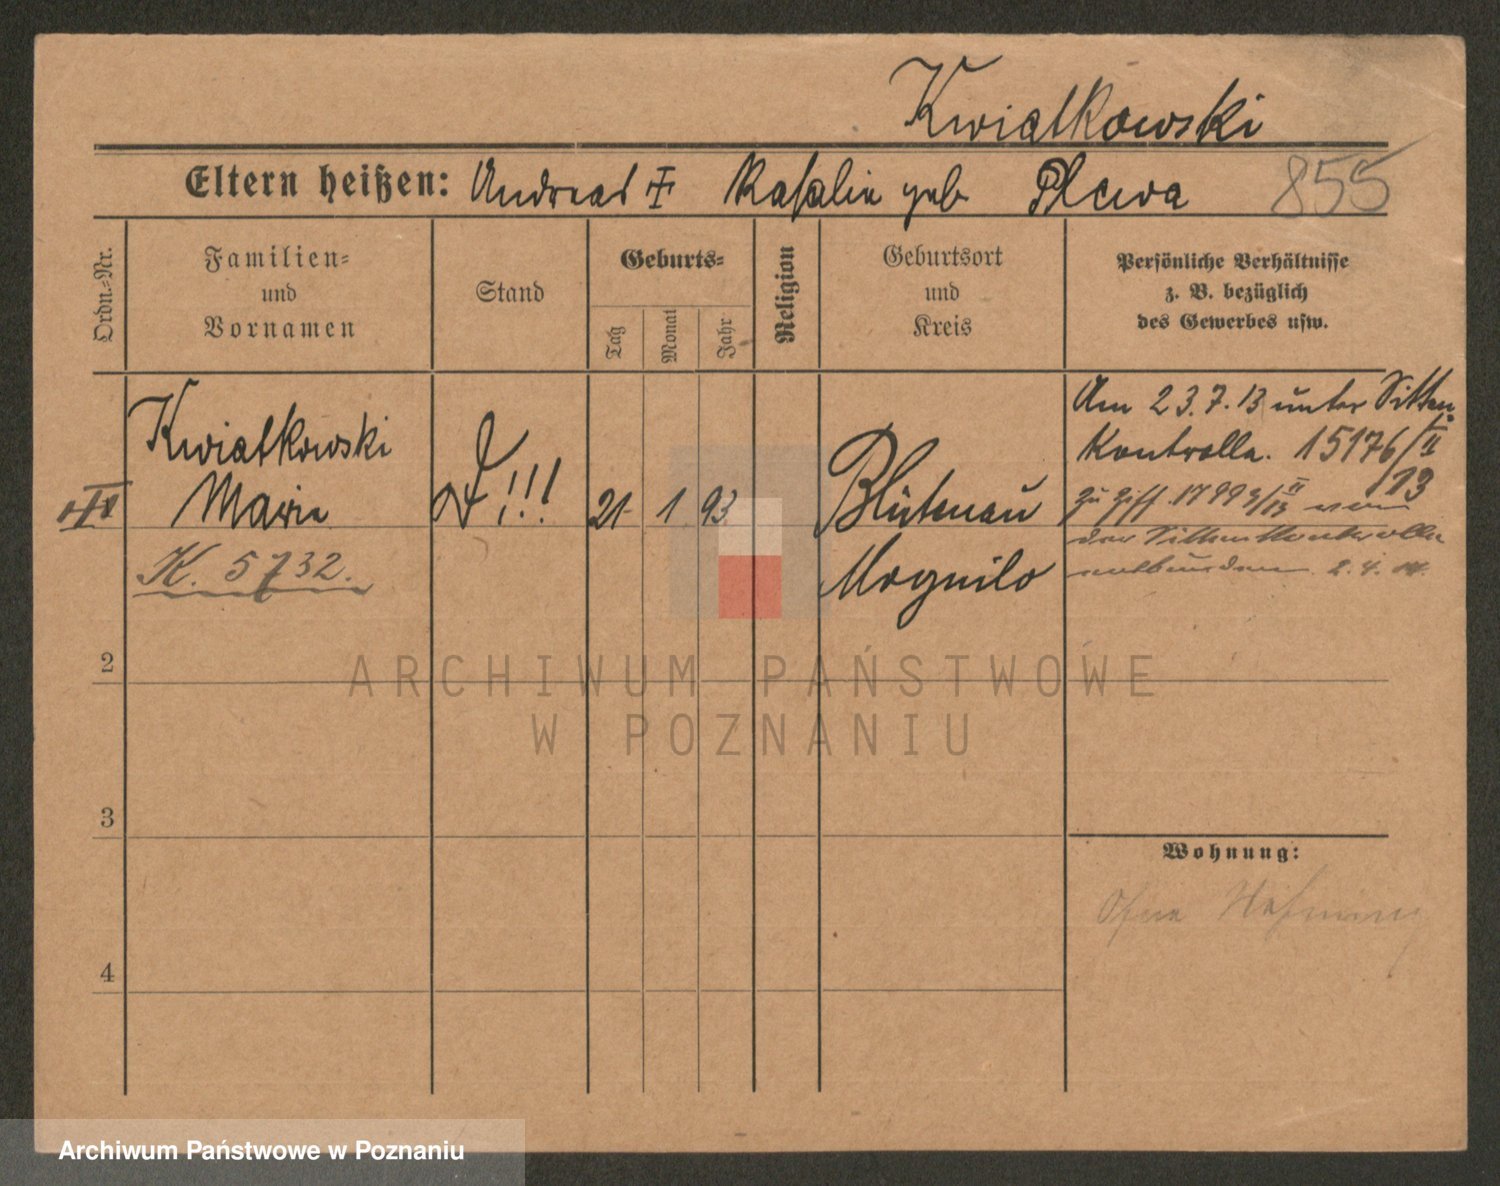 Kwiatkowski
Eltern heißen: Andreas u. Rosalie geb Plewa 855
Ordn.-Nr.
Familien-
und
Vornamen
Stand
Geburts-
Tag
Monat
Jahr
Religion
Geburtsort
und
Kreis
Persönliche Verhältnisse
z. B. bezüglich
des Gewerbes usw.
Kwiatkowski
Marie
K. 5732.
!!!
21 1 93
Blütenau
Mogilno
Am 23.7.13 unter Sitten-
Kontrolle. 15176/II
13
zu Ziff. II/13 von
der Sittenkontrolle
entbunden 2.4.14.
2
3
4
Wohnung:
Ohne Wohnung
ARCHIWUM PAŃSTWOWE
W POZNANIU
Archiwum Państwowe w Poznaniu